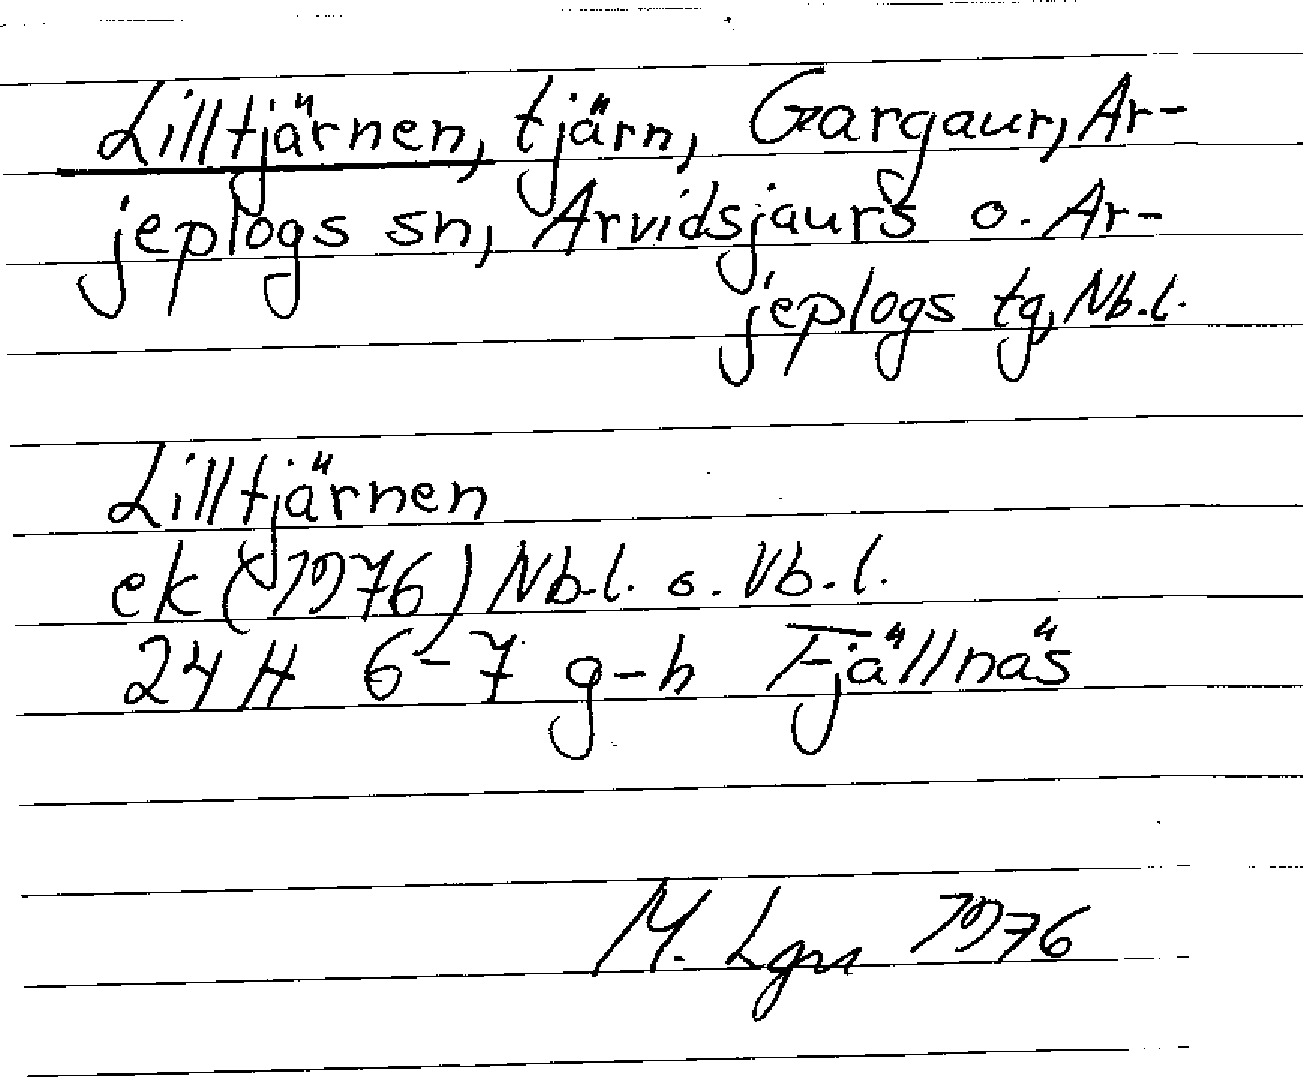 Lilltjärnen, tjärn, Gargaur, Ar-
jeplogs sn, Arvidsjaurs o. Ar-
jeplogs tg, Nb.l.
Lilltjärnen
ek (1976) Nb.l. o. Vb.l.
24 H 6-7 g-h Fjällnäs
M. Lgn 1976